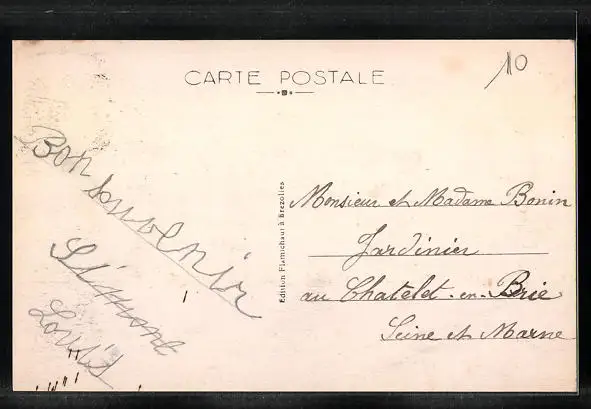 CARTE POSTALE
10
Bon
souvenir
Simone
Louis
Edition Flamichaut à Brezolles
Monsieur et Madame Bonin
Jardinier
au Chatelet-en-Brie
Seine et Marne